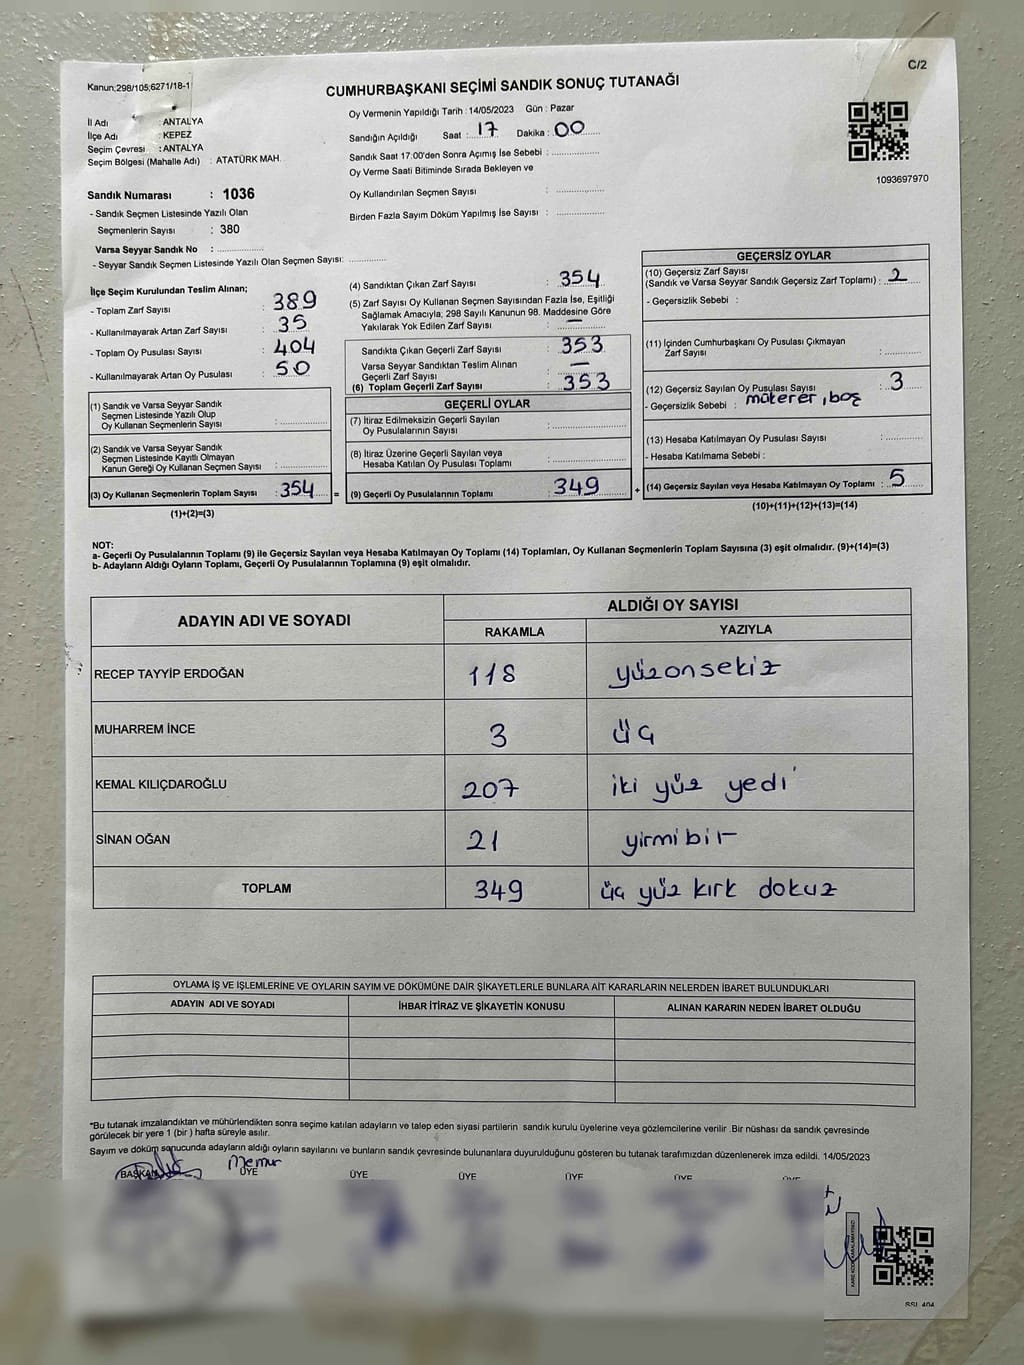 C/2
Kanun;298/105;6271/18-1
CUMHURBAŞKANI SEÇİMİ SANDIK SONUÇ TUTANAĞI
İl Adı : ANTALYA
İlçe Adı : KEPEZ
Seçim Çevresi : ANTALYA
Seçim Bölgesi (Mahalle Adı) : ATATÜRK MAH.
Oy Vermenin Yapıldığı Tarih : 14/05/2023 Gün : Pazar
Sandığın Açıldığı Saat : 17 Dakika : 00
Sandık Saat 17:00'den Sonra Açımış İse Sebebi :
Oy Verme Saati Bitiminde Sırada Bekleyen ve
Oy Kullandırılan Seçmen Sayısı :
Birden Fazla Sayım Döküm Yapılmış İse Sayısı :
1093697970
Sandık Numarası : 1036
- Sandık Seçmen Listesinde Yazılı Olan
Seçmenlerin Sayısı : 380
Varsa Seyyar Sandık No :
- Seyyar Sandık Seçmen Listesinde Yazılı Olan Seçmen Sayısı:
İlçe Seçim Kurulundan Teslim Alınan;
- Toplam Zarf Sayısı : 389
- Kullanılmayarak Artan Zarf Sayısı : 35
- Toplam Oy Pusulası Sayısı : 404
- Kullanılmayarak Artan Oy Pusulası : 50
(1) Sandık ve Varsa Seyyar Sandık
Seçmen Listesinde Yazılı Olup
Oy Kullanan Seçmenlerin Sayısı :
(2) Sandık ve Varsa Seyyar Sandık
Seçmen Listesinde Kayıtlı Olmayan
Kanun Gereği Oy Kullanan Seçmen Sayısı :
(3) Oy Kullanan Seçmenlerin Toplam Sayısı : 354 =
(1)+(2)=(3)
(4) Sandıktan Çıkan Zarf Sayısı : 354
(5) Zarf Sayısı Oy Kullanan Seçmen Sayısından Fazla İse, Eşitliği
Sağlamak Amacıyla; 298 Sayılı Kanunun 98. Maddesine Göre
Yakılarak Yok Edilen Zarf Sayısı : —
Sandıkta Çıkan Geçerli Zarf Sayısı : 353
Varsa Seyyar Sandıktan Teslim Alınan
Geçerli Zarf Sayısı : —
(6) Toplam Geçerli Zarf Sayısı : 353
GEÇERLİ OYLAR
(7) İtiraz Edilmeksizin Geçerli Sayılan
Oy Pusulalarının Sayısı :
(8) İtiraz Üzerine Geçerli Sayılan veya
Hesaba Katılan Oy Pusulası Toplamı :
(9) Geçerli Oy Pusulalarının Toplamı : 349 +
GEÇERSİZ OYLAR
(10) Geçersiz Zarf Sayısı
(Sandık ve Varsa Seyyar Sandık Geçersiz Zarf Toplamı) : 2
- Geçersizlik Sebebi :
(11) İçinden Cumhurbaşkanı Oy Pusulası Çıkmayan
Zarf Sayısı :
(12) Geçersiz Sayılan Oy Pusulası Sayısı : 3
- Geçersizlik Sebebi : müterer, boş
(13) Hesaba Katılmayan Oy Pusulası Sayısı :
- Hesaba Katılmama Sebebi :
(14) Geçersiz Sayılan veya Hesaba Katılmayan Oy Toplamı : 5
(10)+(11)+(12)+(13)=(14)
NOT:
a- Geçerli Oy Pusulalarının Toplamı (9) ile Geçersiz Sayılan veya Hesaba Katılmayan Oy Toplamı (14) Toplamları, Oy Kullanan Seçmenlerin Toplam Sayısına (3) eşit olmalıdır. (9)+(14)=(3)
b- Adayların Aldığı Oyların Toplamı, Geçerli Oy Pusulalarının Toplamına (9) eşit olmalıdır.
ADAYIN ADI VE SOYADI
ALDIĞI OY SAYISI
RAKAMLA YAZIYLA
RECEP TAYYİP ERDOĞAN 118 yüzonsekiz
MUHARREM İNCE 3 üç
KEMAL KILIÇDAROĞLU 207 iki yüz yedi
SİNAN OĞAN 21 yirmibir
TOPLAM 349 üç yüz kırk dokuz
OYLAMA İŞ VE İŞLEMLERİNE VE OYLARIN SAYIM VE DÖKÜMÜNE DAİR ŞİKAYETLERLE BUNLARA AİT KARARLARIN NELERDEN İBARET BULUNDUKLARI
ADAYIN ADI VE SOYADI İHBAR İTİRAZ VE ŞİKAYETİN KONUSU ALINAN KARARIN NEDEN İBARET OLDUĞU
*Bu tutanak imzalandıktan ve mühürlendikten sonra seçime katılan adayların ve talep eden siyasi partilerin sandık kurulu üyelerine veya gözlemcilerine verilir .Bir nüshası da sandık çevresinde
görülecek bir yere 1 (bir ) hafta süreyle asılır.
Sayım ve döküm sonucunda adayların aldığı oyların sayılarını ve bunların sandık çevresinde bulunanlara duyurulduğunu gösteren bu tutanak tarafımızdan düzenlenerek imza edildi. 14/05/2023
Memur
BAŞKAN ÜYE ÜYE ÜYE ÜYE ÜYE ÜYE